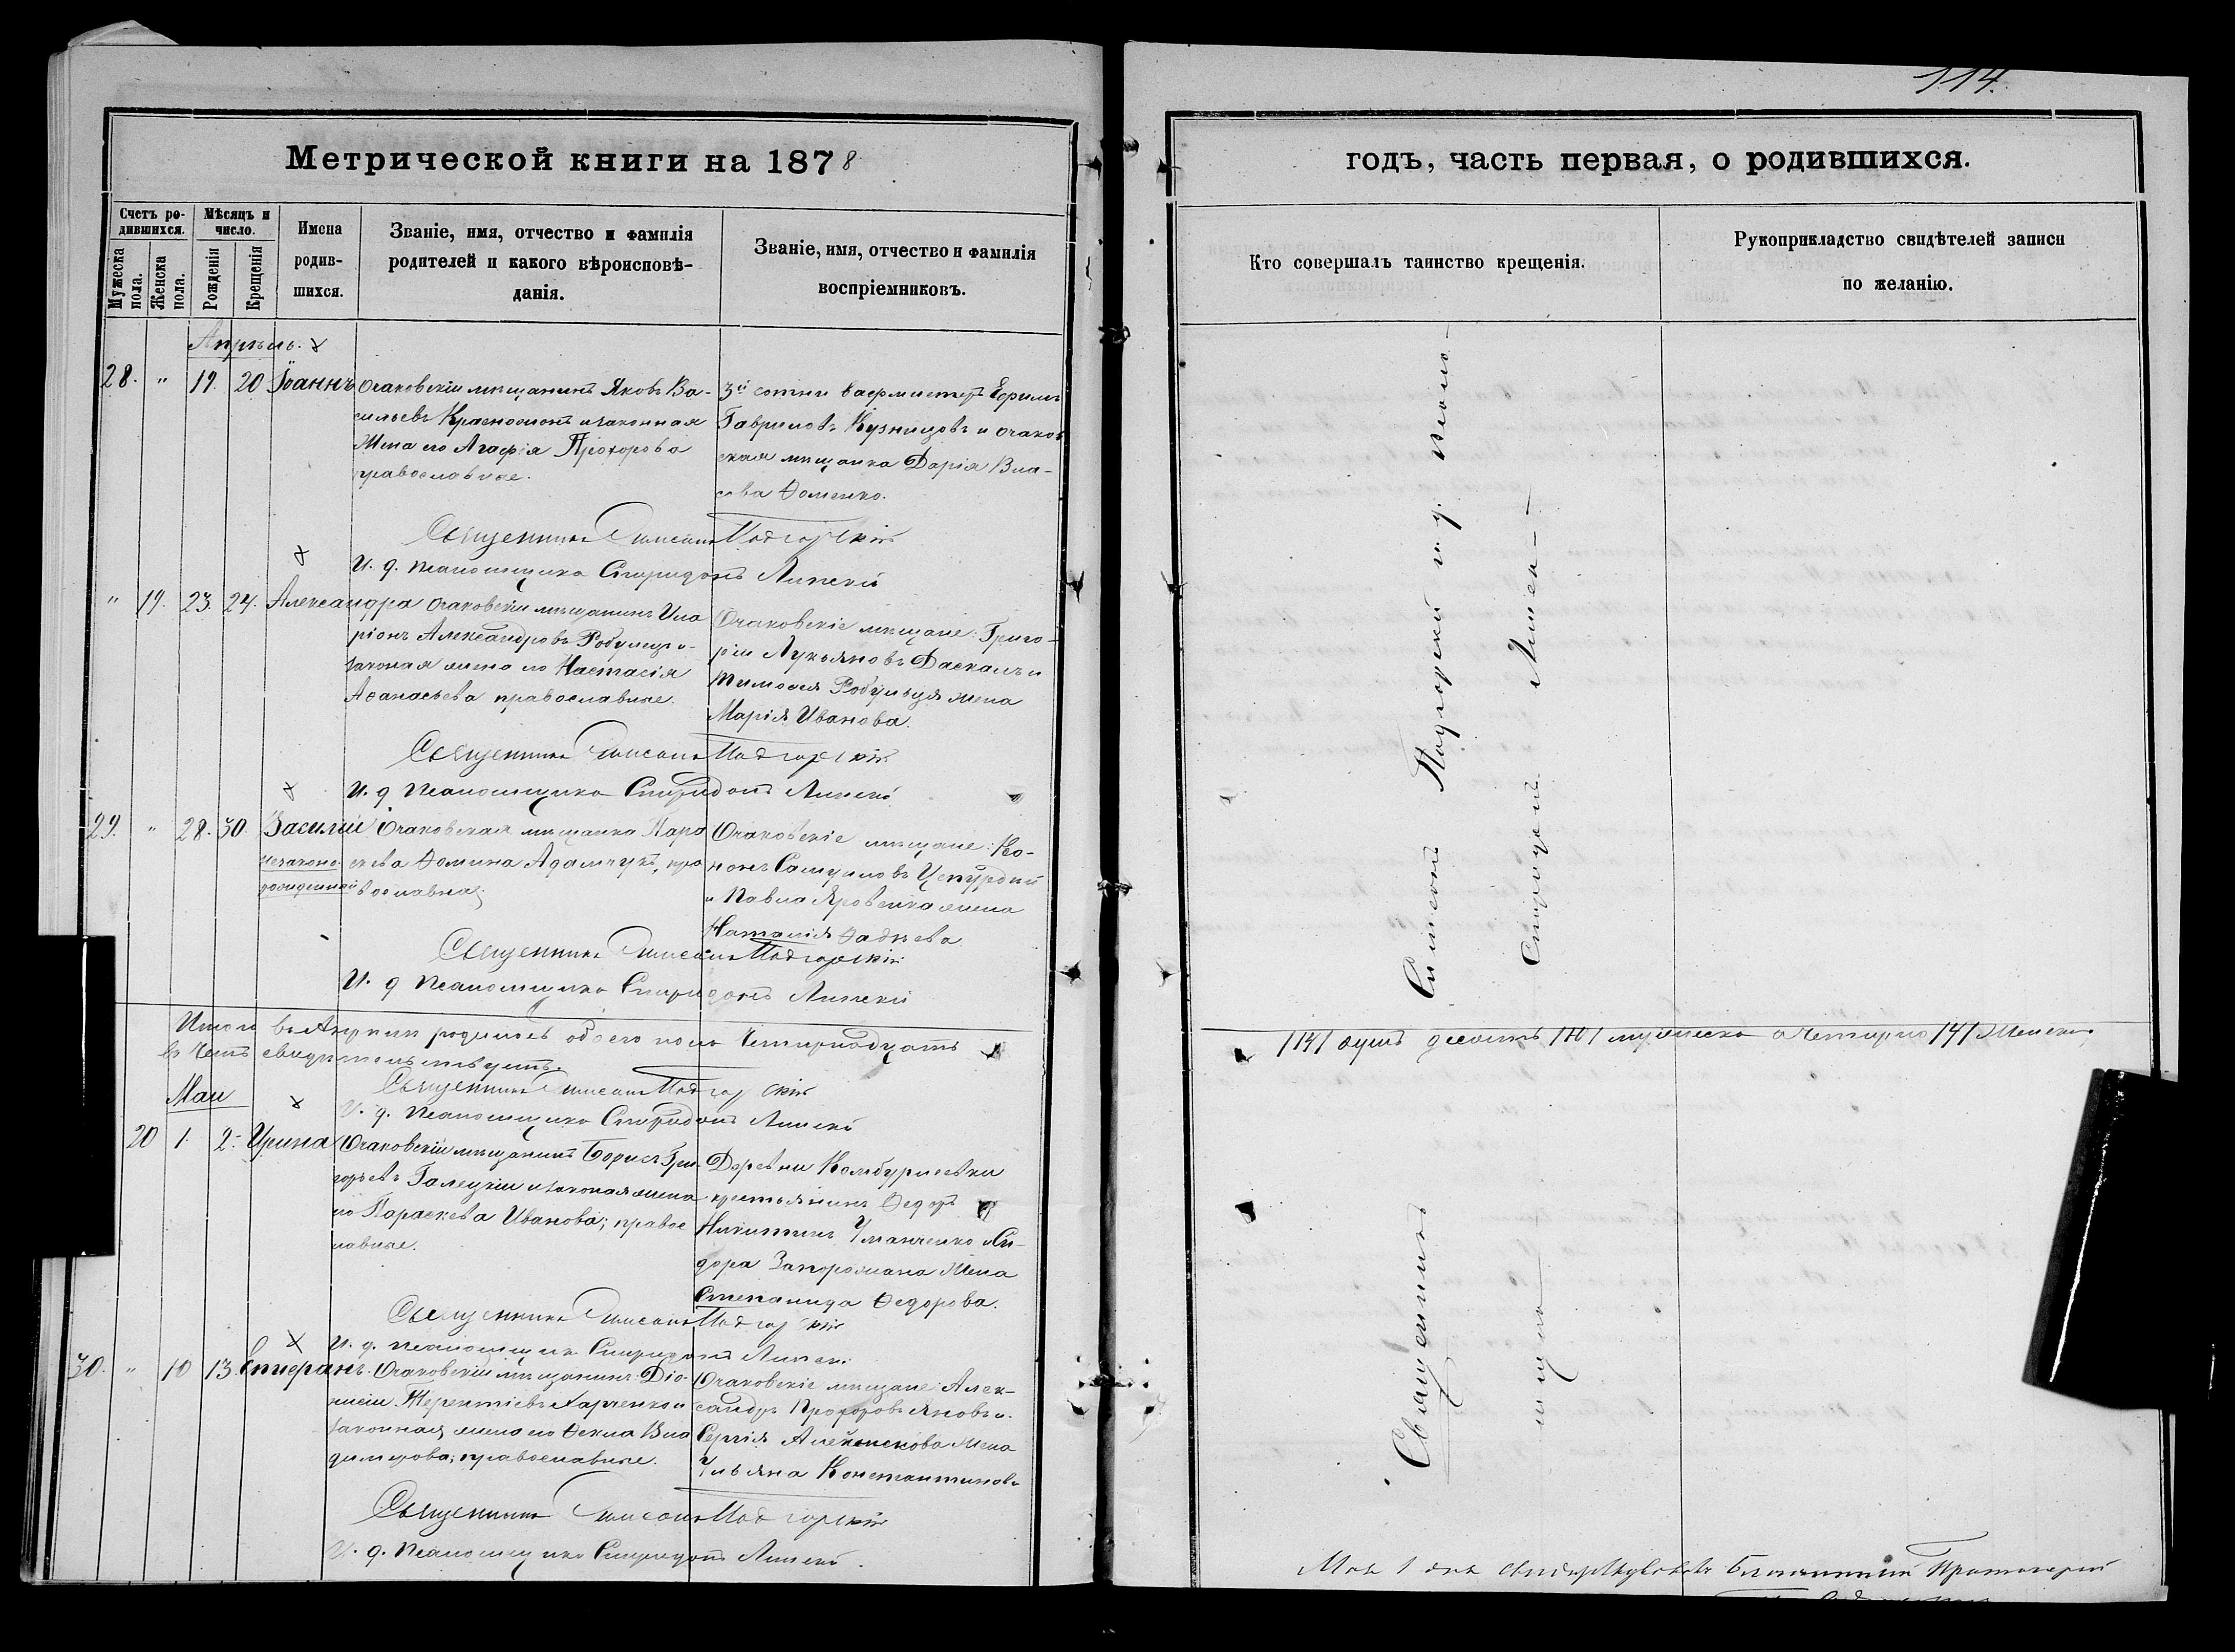 114.
Метрической книги на 1878
годъ, часть первая, о родившихся.
Счетъ ро-
дившихся.
Мужеска
пола.
Женска
пола.
Мѣсяцъ и
число.
Рожденія
Крещенія
Имена
родив-
шихся.
Званіе, имя, отчество и фамилія
родителей и какого вѣроисповѣ-
данія.
Званіе, имя, отчество и фамилія
воспріемниковъ.
Кто совершалъ таинство крещенія.
Рукоприкладство свидѣтелей записи
по желанію.
Апрѣль.
28. " 19. 20 Іоаннъ
Очаковскій мѣщанинъ Яковъ Ва-
сильевъ и законная
жена его Агафія Прохорова
православные.
3й сотни Ефимъ
Гавриловъ Кузнецовъ и очаков
ская мѣщанка Дарія Вла-
сова Ѳоменко.
Священникъ Симеонъ Подгорскій
И. д. псаломщика Спиридонъ Липскій
" 19. 23. 24. Александра
Очаковскій мѣщанинъ Ила
ріонъ Александровъ и
законая жена его Настасія
Аѳанасьева православные.
Очаковскіе мѣщане: Григо-
рій Лукьяновъ Даскалъ и
Тимоѳея Робульця жена
Марія Иванова.
Священникъ Симеонъ Подгорскій
И. д. псаломщика Спиридонъ Липскій
29. " 28. 30. Василій
незаконо-
рожденный
Очаковская мѣщанка Пара
скева Ѳомина Адамчукъ, пра
вославная.
Очаковскіе мѣщане: Ко-
нонъ Самуиловъ Цепурдей
и Павла Яровенка жена
Наталія Ѳадѣева.
Священникъ Симеонъ Подгорскій
И. д. псаломщика Спиридонъ Липскій
Итого въ Апрѣлѣ родилось обоего пола четырнадцать
/14/ душъ десять /10/ мужеска а четыре /4/ женска,
въ чемъ свидѣтельствуютъ.
Священникъ Симеонъ Подгорскій
И. д. псаломщика Спиридонъ Липскій
Май
20 1. 2. Ирина
Очаковскій мѣщанинъ Борисъ Гри-
горьевъ Галецкій и законая жена
его Параскева Иванова; правос
лавные.
Деревни
крестьянинъ Ѳедоръ
Никитинъ Уманченко и Си-
дора Запорожана жена
Степанида Ѳедорова.
Священникъ Симеонъ Подгорскій
И. д. псаломщика Спиридонъ Липскій
30. " 10 13. Епифанъ.
Очаковскій мѣщанинъ Діо-
нисій Терентіевъ Харченко и
законная жена его Ѳекла Вла
димирова; православные.
Очаковскіе мѣщане: Алек-
сандръ Прохоровъ Яновъ и
Сергія жена
Ульяна Константинова
Священникъ Симеонъ Подгорскій
И. д. псаломщика Спиридонъ Липскій.
Священникъ Симеонъ Подгорскій и. д. псалом-
щика Спиридонъ Липскій
Мая 1 дня Благочинный Протоіерей